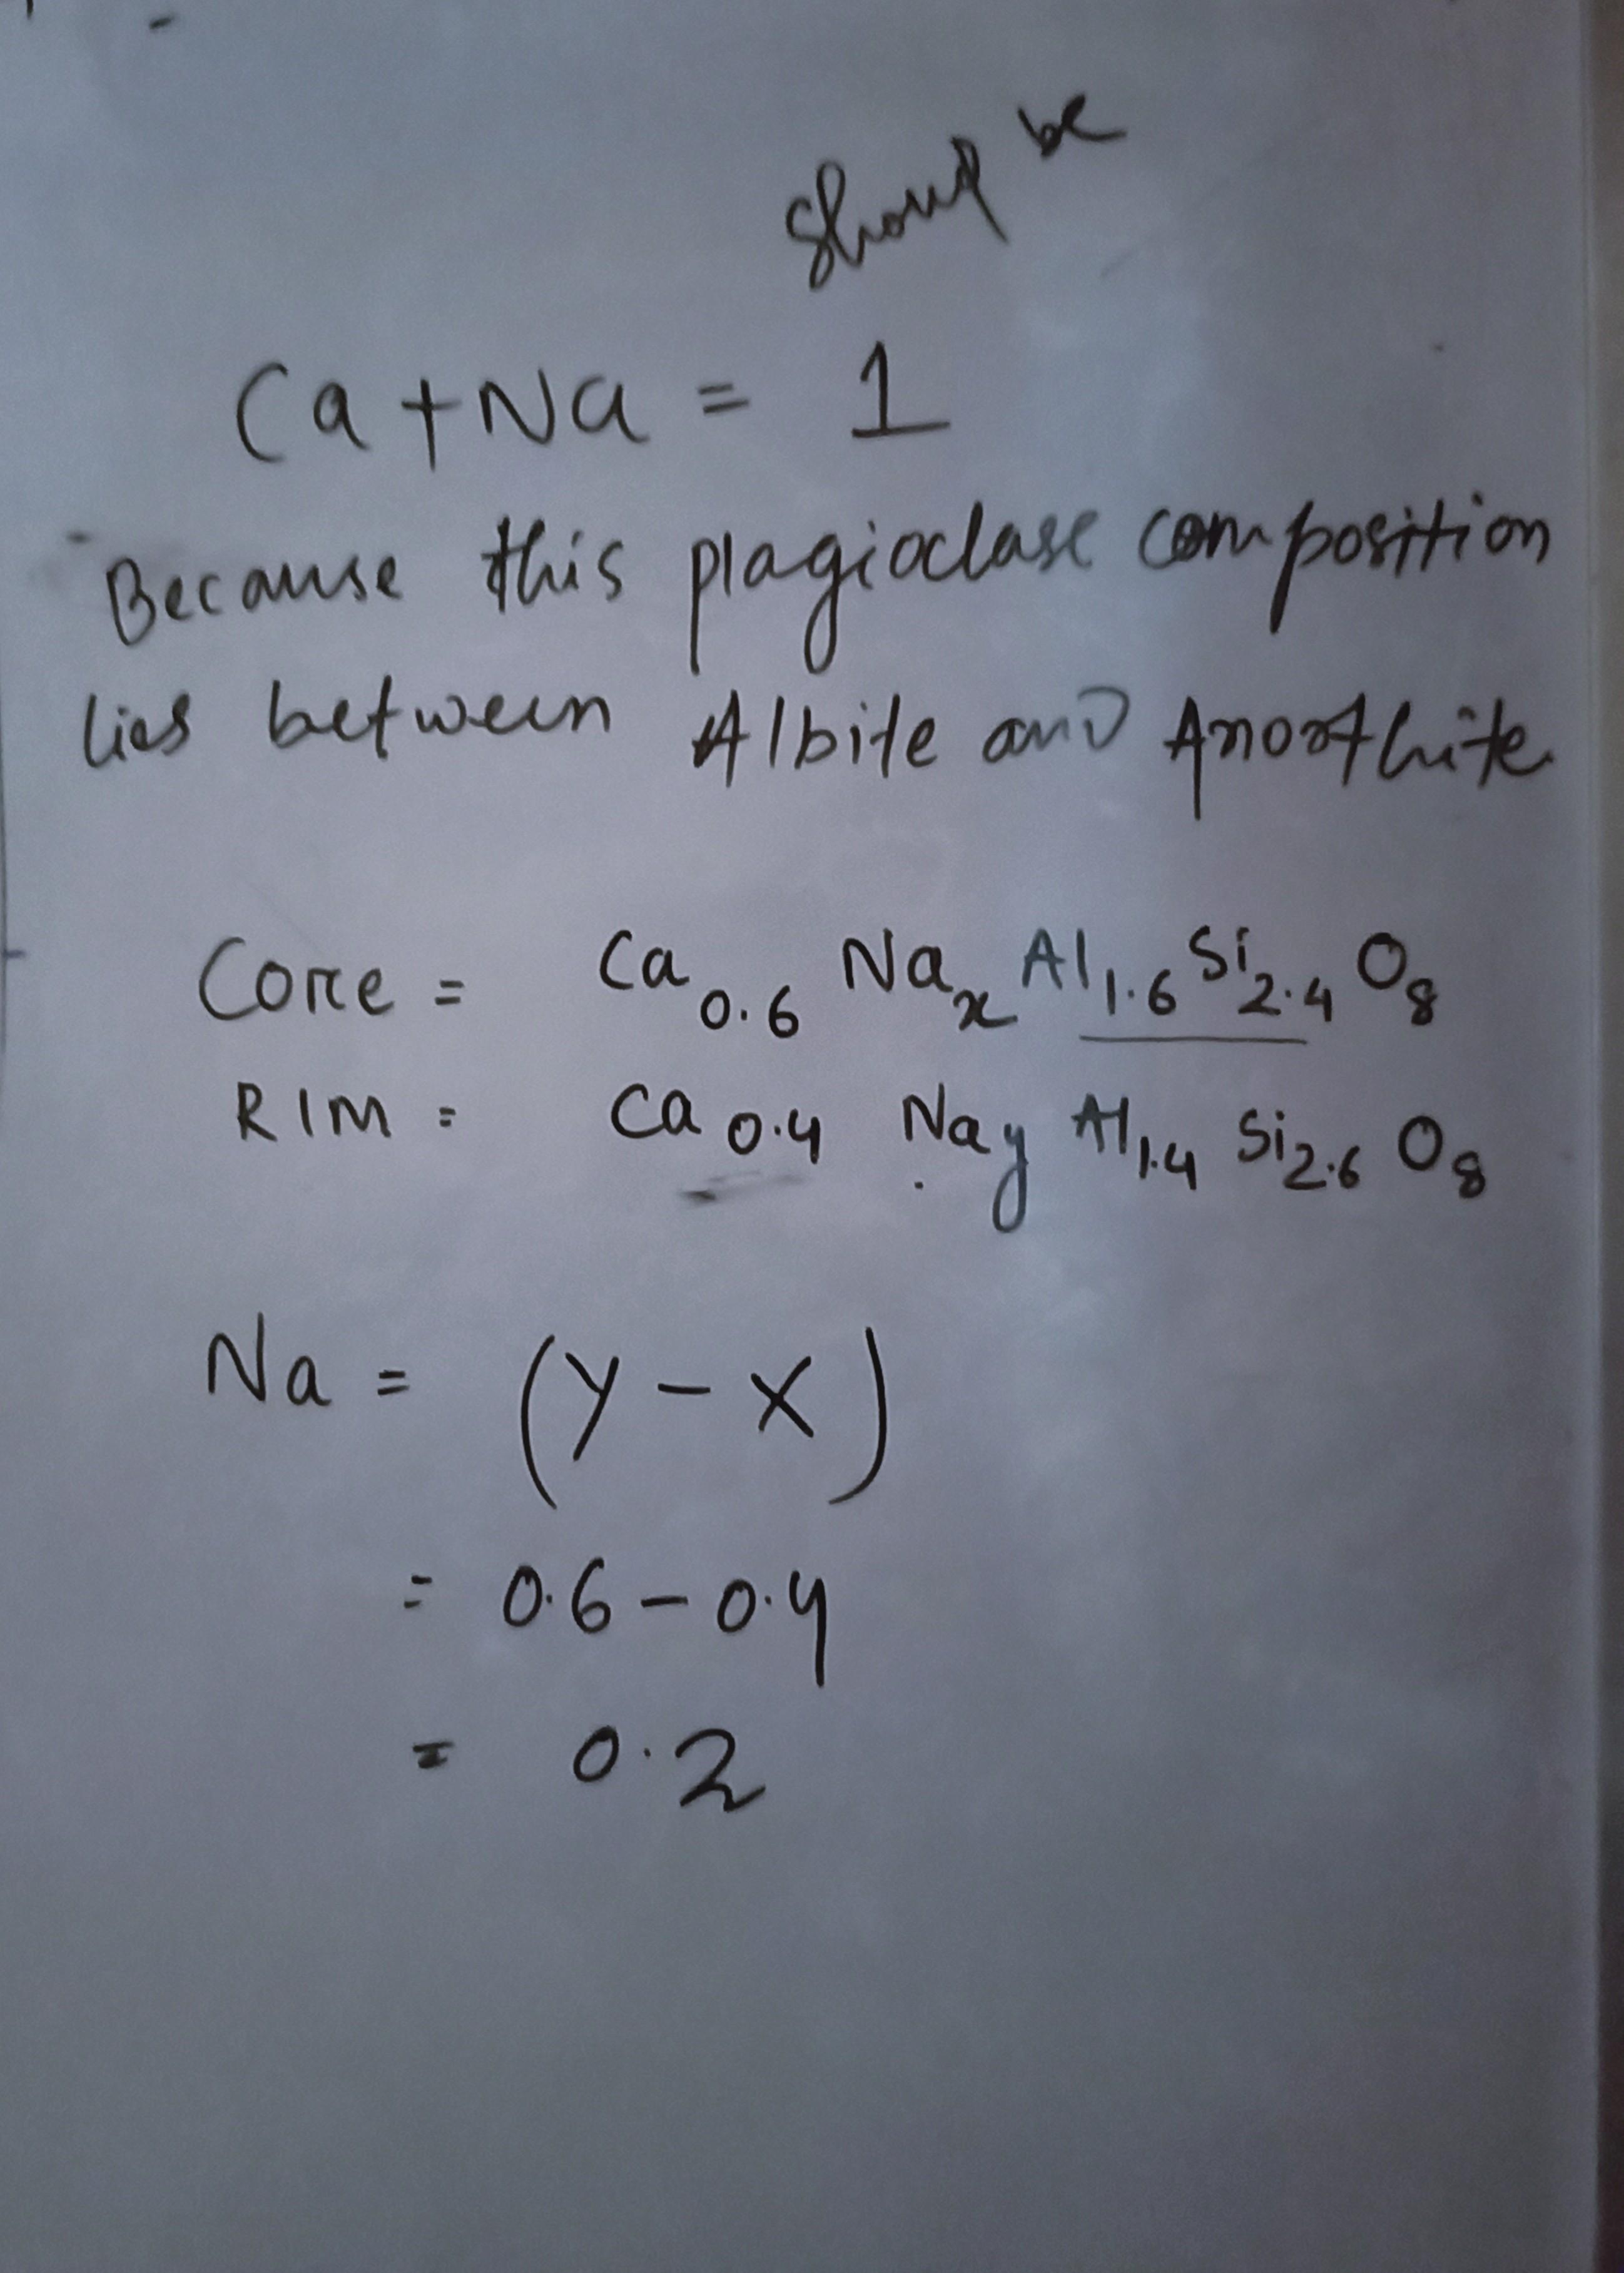 should be
Ca + Na = 1
Because this plagioclase composition
lies between Albite and Anorthite
Core = Ca0.6 Nax Al1.6 Si2.4 O8
RIM = Ca0.4 Nay Al1.4 Si2.6 O8
Na = (y - x)
= 0.6 - 0.4
= 0.2